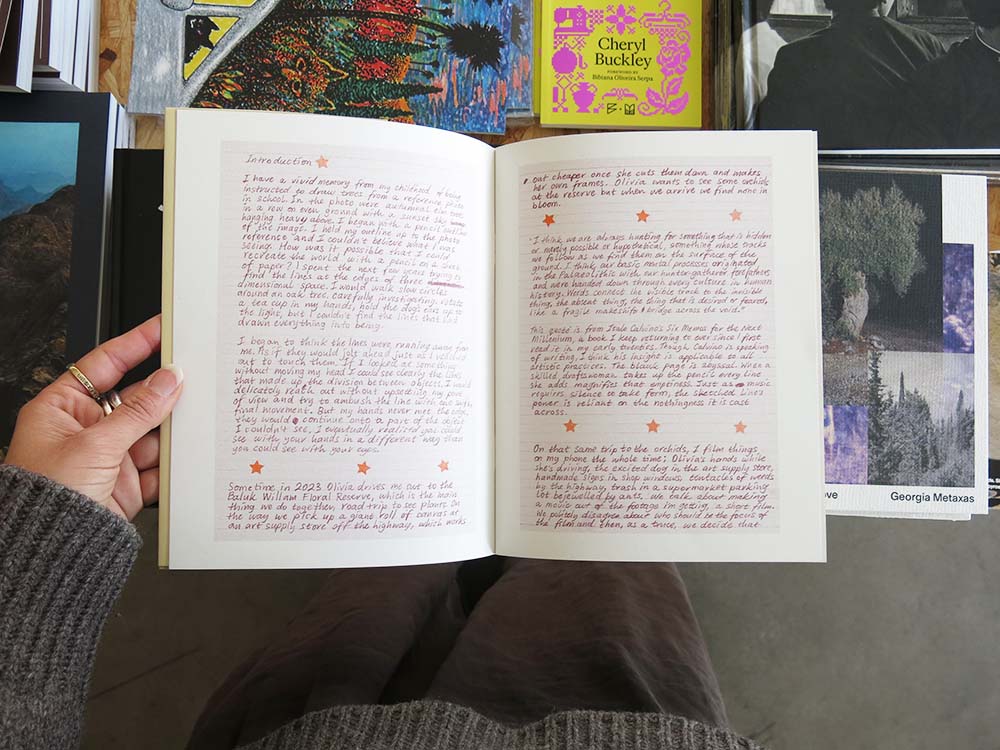 Cheryl
Buckley
FOREWORD BY
Bibiana Oliveira Serpa
Introduction
I have a vivid memory from my childhood of being
instructed to draw trees from a reference photo
in school. In the photo were autumnal elm trees
in a row on even ground with a sunset sky
hanging heavy above. I began with a pencil outline
of the image. I held my outline up to the photo
reference and I couldn't believe what I was
seeing. How was it possible that I could
recreate the world with a pencil on a sheet
of paper? I spent the next few years trying to
find the lines at the edges of three
dimensional space. I would walk slow circles
around an oak tree, carefully investigating, rotate
a tea cup in my hands, hold the dog's ears up to
the light, but I couldn't find the lines that had
drawn everything into being.
I began to think the lines were running away from
me. As if they would jolt ahead just as I reached
out to touch them. If I looked at something
without moving my head I could see clearly the lines
that made up the division between objects. I would
delicately reach out without upsetting my point
of view and try to ambush the line with one swift
final movement. But my hands never met the edge,
they would continue onto a part of the object
I couldn't see. I eventually realized you could
see with your hands in a different way than
you could see with your eyes.
Sometime in 2023 Olivia drives me out to the
Baluk Willam Floral Reserve, which is the main
thing we do together, road trip to see plants. On
the way we pick up a giant roll of canvas at
an art supply store off the highway, which works
out cheaper once she cuts them down and makes
her own frames. Olivia wants to see some orchids
at the reserve but when we arrive we find none in
bloom.
"I think we are always hunting for something that is hidden
or merely possible or hypothetical, something whose tracks
we follow as we find them on the surface of the
ground. I think our basic mental processes originated
in the Palaeolithic with our hunter-gatherer forefathers
and were handed down through every culture in human
history. Words connect the visible track to the invisible
thing, the absent thing, the thing that is desired or feared,
like a fragile makeshift bridge across the void."
This quote is from Italo Calvino's Six Memos for the Next
Millenium, a book I keep returning to ever since I first
read it in my early twenties. Though Calvino is speaking
of writing, I think his insight is applicable to all
artistic practices. The blank page is abyssal. When a
skilled draftswoman takes up the pencil every line
she adds magnifies that emptiness. Just as music
requires silence to take form, the sketched line's
power is reliant on the nothingness it is cast
across.
On that same trip to the orchids, I film things
on my phone the whole time: Olivia's hands while
she's driving, the excited dog in the art supply store,
handmade signs in shop windows, tentacles of weeds
by the highway, trash in a supermarket parking
lot bejewelled by ants. We talk about making
a movie out of the footage I'm getting, a short film.
We politely disagree about who should be the focus of
the film and then, as a truce, we decide that
ove
Georgia Metaxas